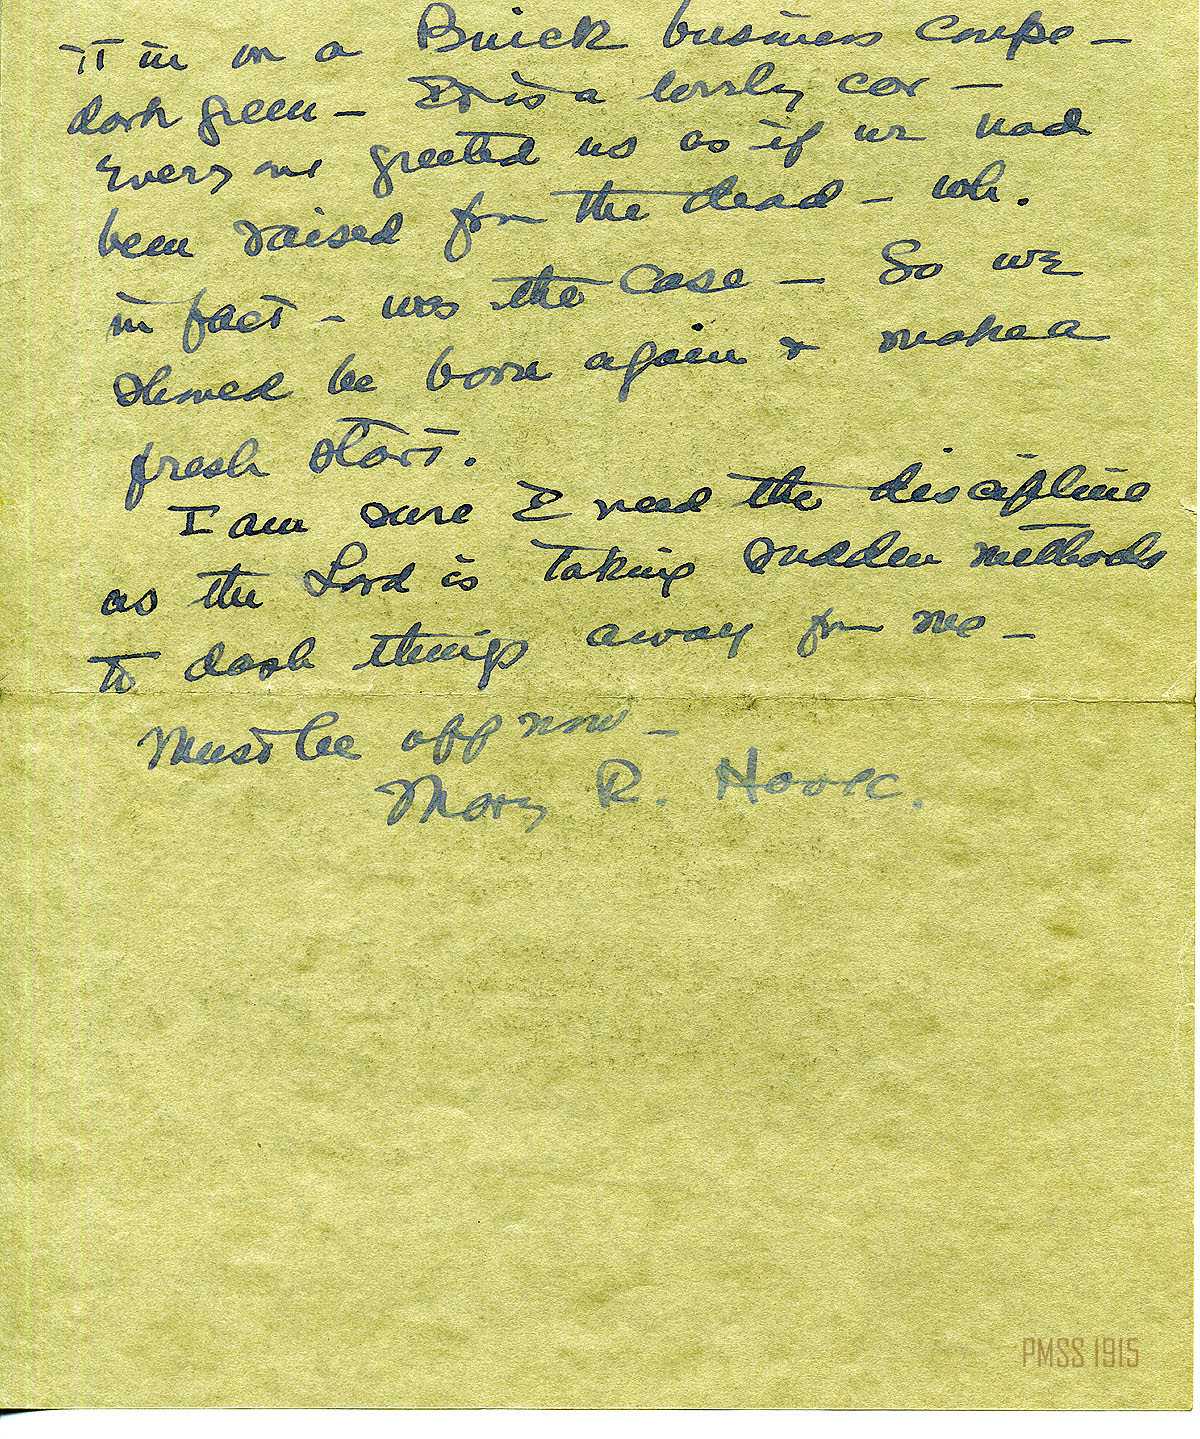 it in on a Buick business coupe —
dark green — It is a lovely car —
Every one greeted us as if we had
been raised from the dead — wh.
in fact — was the case — So we
shoued be born again & make a
fresh start.
I am sure I need the discipline
as the Lord is taking sudden methods
to dash things away from me —
Must be off now —
Mary R. Hook.
PMSS 1915